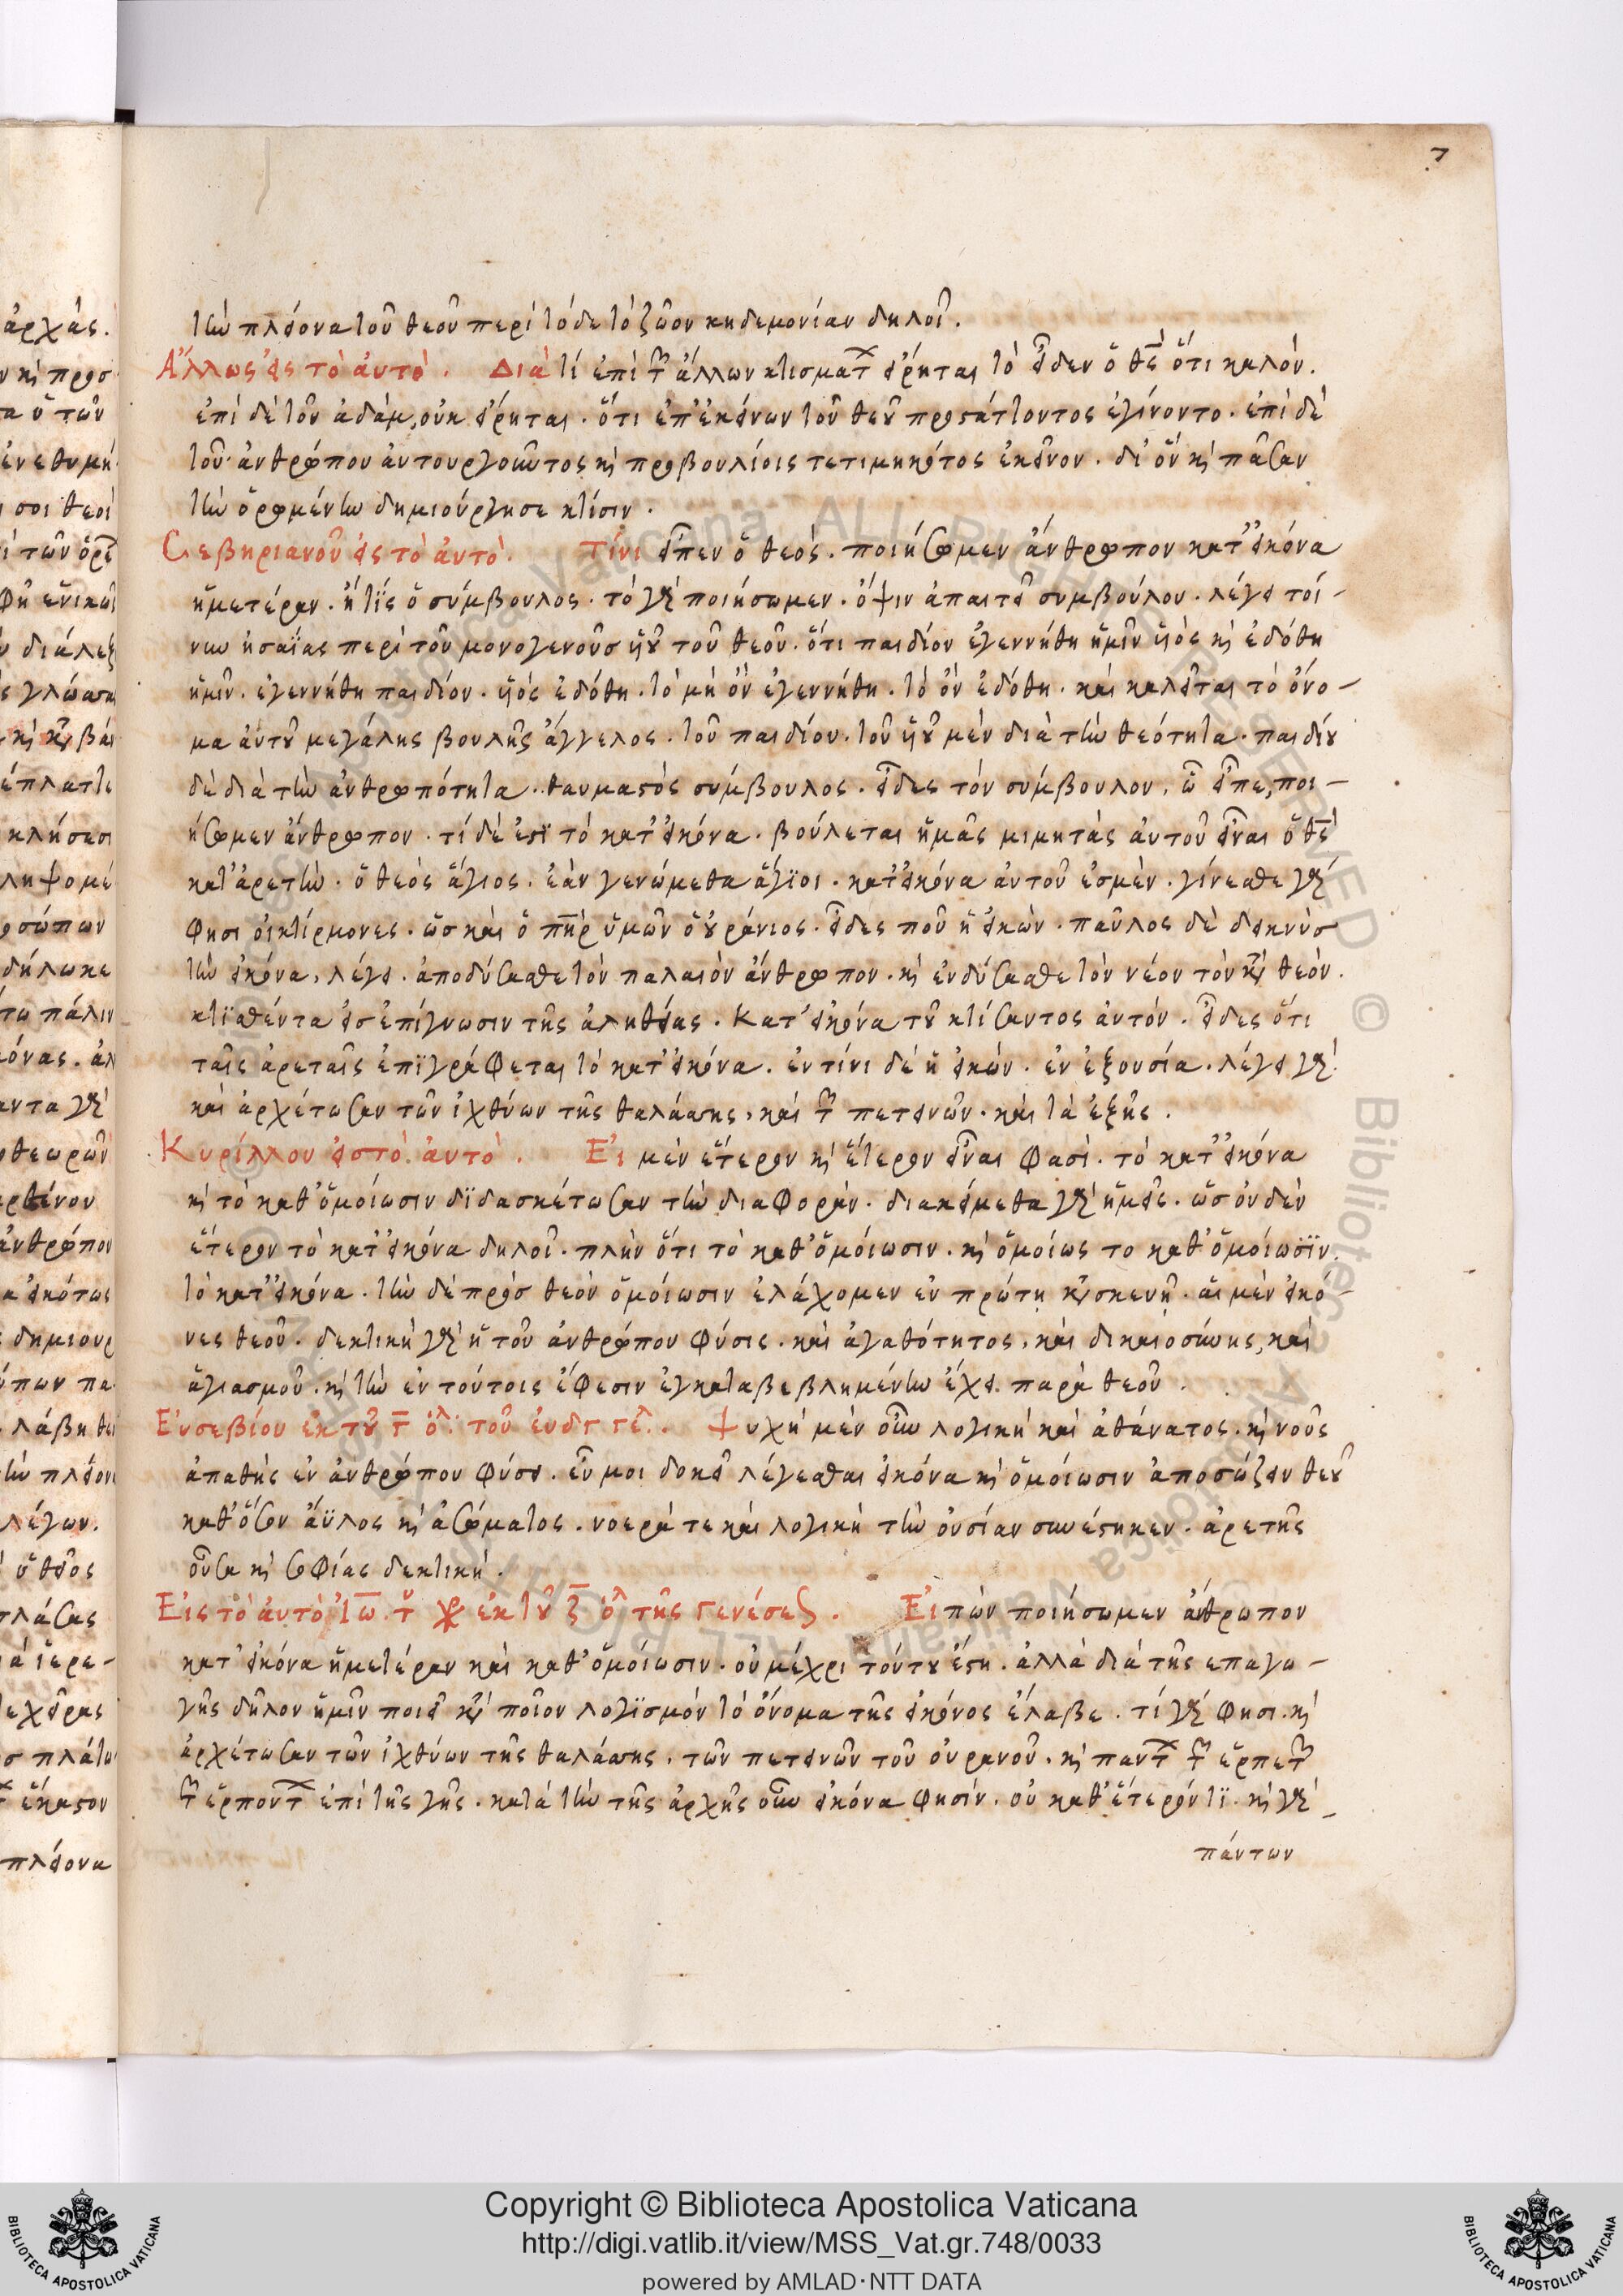 7
τὴν πλείονα τοῦ θεοῦ περὶ τόδε τὸ ζῶον κηδεμονίαν δηλοῖ.
Ἄλλως εἰς τὸ ἀυτό. Διὰ τί ἐπὶ τῶν ἄλλων κτισμάτων εἴρηται τὸ εἶδεν ὁ θς ὅτι καλόν.
ἐπὶ δὲ τοῦ ἀδάμ, οὐκ εἴρηται. ὅτι ἐπ' ἐκείνων τοῦ θεοῦ προστάττοντος ἐγίνοντο. ἐπὶ δὲ
τοῦ ἀνθρώπου ἀυτουργοῦντος κὶ προβουλίοις τετιμηκότος ἐκεῖνον. δι' ὅν κὶ πᾶσαν
τὴν ὁρωμένην δημιούργησε κτίσιν.
Σεβηριανοῦ εἰς τὸ ἀυτό. Τίνι εἶπεν ὁ θεός. ποιήσωμεν ἄνθρωπον κατ' εἰκόνα
ἡμετέραν. ἢ τίς ὁ σύμβουλος. τὸ γὰρ ποιήσωμεν. ὄψιν ἀπαιτεῖ συμβούλου. λέγει τοί-
νυν ἠσαΐας περὶ τοῦ μονογενοῦσ ὑιοῦ τοῦ θεοῦ. ὅτι παιδίον ἐγεννήθη ἡμῖν ὑιὸς κὶ ἐδόθη
ἡμῖν. ἐγεννήθη παιδίον. ὑιός ἐδόθη. τὸ μὴ ὂν ἐγεννήθη. τὸ ὂν ἐδόθη. καὶ καλεῖται τὸ ὄνο-
μα ἀυτοῦ μεγάλης βουλῆς ἄγγελος. τοῦ παιδίου. τοῦ ὑιοῦ μὲν διὰ τὴν θεότητα. παιδίου
δὲ διὰ τὴν ἀνθρωπότητα. θαυμαστὸς σύμβουλος. εἶδες τὸν σύμβουλον, ὧ εἶπε, ποι-
ήσωμεν ἄνθρωπον. τί δὲ ἐστὶ τὸ κατ' εἰκόνα. βούλεται ἡμᾶς μιμητὰς ἀυτοῦ εἶναι ὁ θς
κατ' ἀρετὴν. ὁ θεὸς ἅγιος. ἐὰν γενώμεθα ἅγϊοι. κατ' εἰκόνα ἀυτοῦ ἐσμὲν. γίνεσθε γὰρ
φησι οἰκτίρμονες. ὡσ καὶ ὁ πηρ ὑμῶν ὁ οὐράνιος. εἶδες ποῦ ἡ εἰκὼν. παῦλος δὲ δεικνὺσ
τὴν εἰκόνα, λέγει. ἀποδύσασθε τὸν παλαιὸν ἄνθρωπον. κὶ ἐνδύσασθε τὸν νέον τὸν κατὰ θεὸν.
κτϊσθέντα εἰσ ἐπίγνωσιν τῆς ἀληθείας. Κατ' εἰκόνα τοῦ κτίσαντος ἀυτόν. εἶδες ὅτι
ταῖς ἀρεταῖς ἐπϊγράφεται τὸ κατ' εἰκόνα. ἐν τίνι δὲ ἡ εἰκών. ἐν ἐξουσία. λέγει γὰρ.
καὶ ἀρχέτωσαν τῶν ἰχθύων τῆς θαλάσσης, καὶ τῶν πετεινῶν. καὶ τὰ ἑξῆς.
Κυρίλλου εἰς τὸ ἀυτό. Εἰ μὲν ἕτερον κὶ ἕτερον εἶναι φασὶ. τὸ κατ' εἰκόνα
κὶ τὸ καθ' ὁμοίωσιν δϊδασκέτωσαν τὴν διαφορὰν. διακείμεθα γὰρ ἡμεῖς. ὡσ οὐδὲν
ἕτερον τὸ κατ' εἰκόνα δηλοῖ. πλὴν ὅτι τὸ καθ' ὁμοίωσιν. κὶ ὁμοίως το καθ' ὁμοίωσϊν
τὸ κατ' εἰκόνα. τὴν δὲ πρὸσ θεὸν ὁμοίωσιν ἐλάχομεν ἐν πρώτη κατασκευῆ. ἁι μὲν εἰκό-
νες θεοῦ. δεκτικὴ γὰρ ἡ τοῦ ἀνθρώπου φύσις. καὶ ἀγαθότητος, καὶ δικαιοσύνης, καὶ
ἁγιασμοῦ. κὶ τὴν ἐν τούτοις ἔφεσιν ἐγκαταβεβλημένην ἔχει παρὰ θεοῦ.
Εὐσεβίου ἐκ τοῦ γ λ. τοῦ ἐυαγγελ. Ψυχὴ μὲν οὖν λογικὴ καὶ ἀθάνατος. κὶ νοῦς
ἀπαθὴς ἐν ἀνθρώπου φύσει. εὖ μοι δοκεῖ λέγεσθαι εἰκόνα κὶ ὁμοίωσιν ἀποσώζειν θεοῦ
καθ' ὅσον ἄϋλος κὶ ἀσώματος. νοερά τε καὶ λογικὴ τὴν οὐσίαν συνέστηκεν. ἀρετῆς
οὖσα κὶ σοφίας δεκτική.
Εἰς τὸ ἀυτὸ Ἰω. τοῦ χρ ἐκ τοῦ ξ λ τῆς γενέσεως. Εἰπὼν ποιήσωμεν ἄνθρωπον
κατ' εἰκόνα ἡμετέραν καὶ καθ' ὁμοίωσιν. οὐ μέχρι τούτου ἔστη. ἀλλὰ διὰ τῆς επαγω-
γῆς δῆλον ἡμῖν ποιεῖ κατὰ ποῖον λογϊσμὸν τὸ ὄνομα τῆς εἰκόνος ἔλαβε. τί γάρ φησι. κὶ
ἀρχέτωσαν τῶν ἰχθύων τῆς θαλάσσης, τῶν πετεινῶν τοῦ οὐρανοῦ. κὶ πάντων τῶν ἑρπετῶν
τῶν ἑρπόντων ἐπὶ τῆς γῆς. κατὰ τὴν τῆς ἀρχῆς οὖν εἰκόνα φησίν. οὐ καθ' ἕτερόν τϊ. κὶ γὰρ
πάντων
Copyright © Biblioteca Apostolica Vaticana
http://digi.vatlib.it/view/MSS_Vat.gr.748/0033
powered by AMLAD·NTT DATA